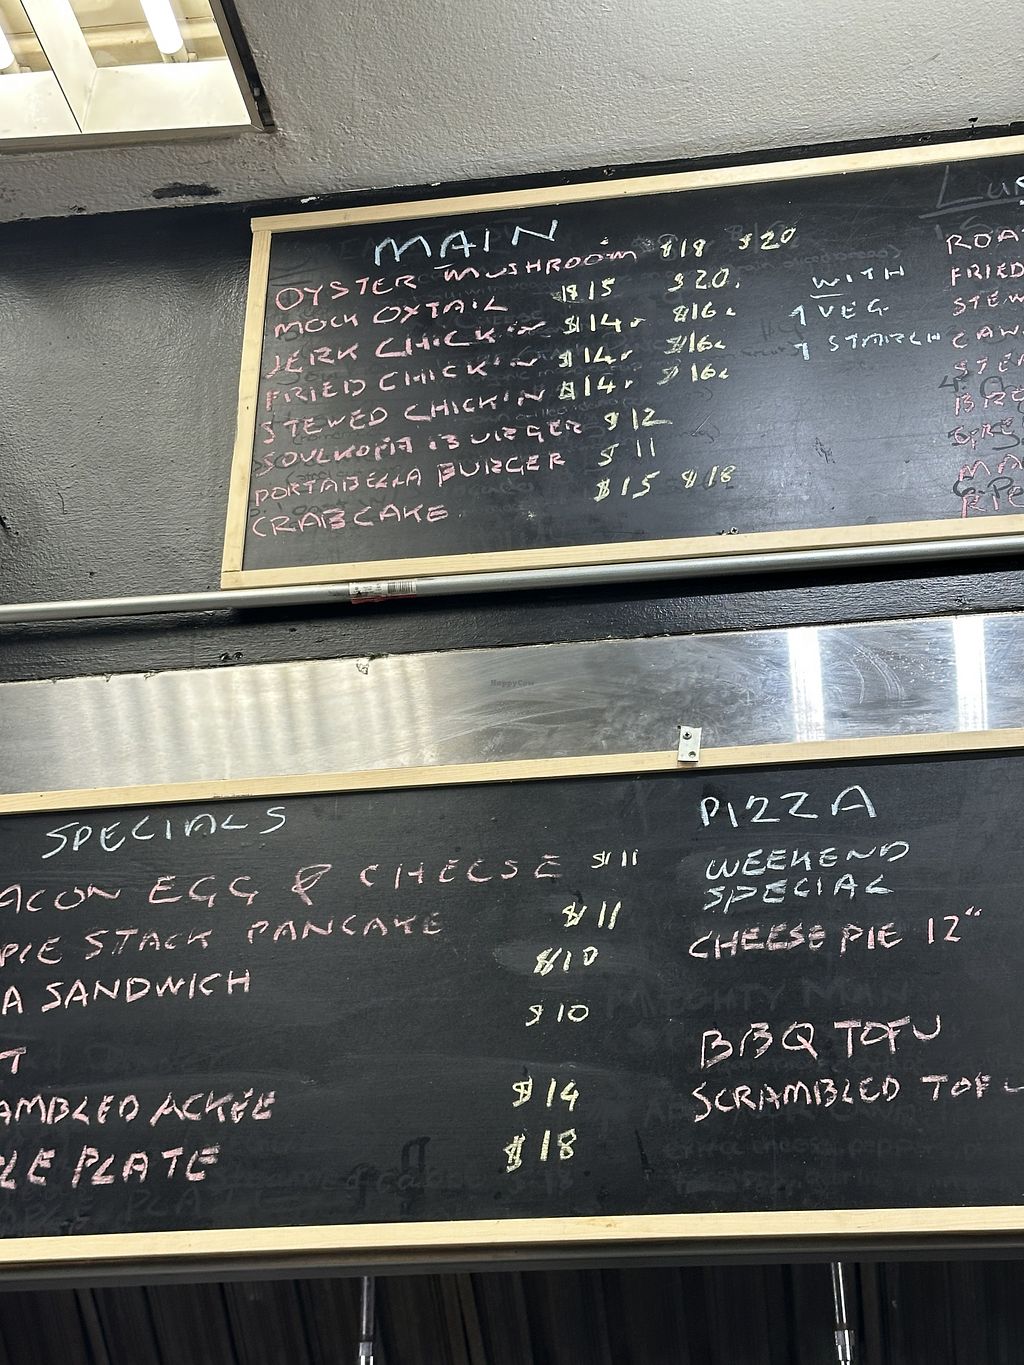 MAIN
OYSTER MUSHROOM $18 $20
MOCK OXTAIL $15 $20.
JERK CHICK'N $14. $16.
FRIED CHICK'N $14. $16.
STEWED CHICKIN $14. $16.
SOULKOFA BURGER $12
PORTABELLA BURGER $11
CRABCAKE $15 $18
WITH
1 VEG.
1 STARCH
ROA
FRIED
STEW
SPECIALS
ACON EGG & CHEESE $11
PLE STACK PANCAKE $11
A SANDWICH $10
T $10
AMBLED ACKEE $14
LE PLATE $18
PIZZA
WEEKEND
SPECIAL
CHEESE PIE 12"
BBQ TOFU
SCRAMBLED TOFU
HappyCow